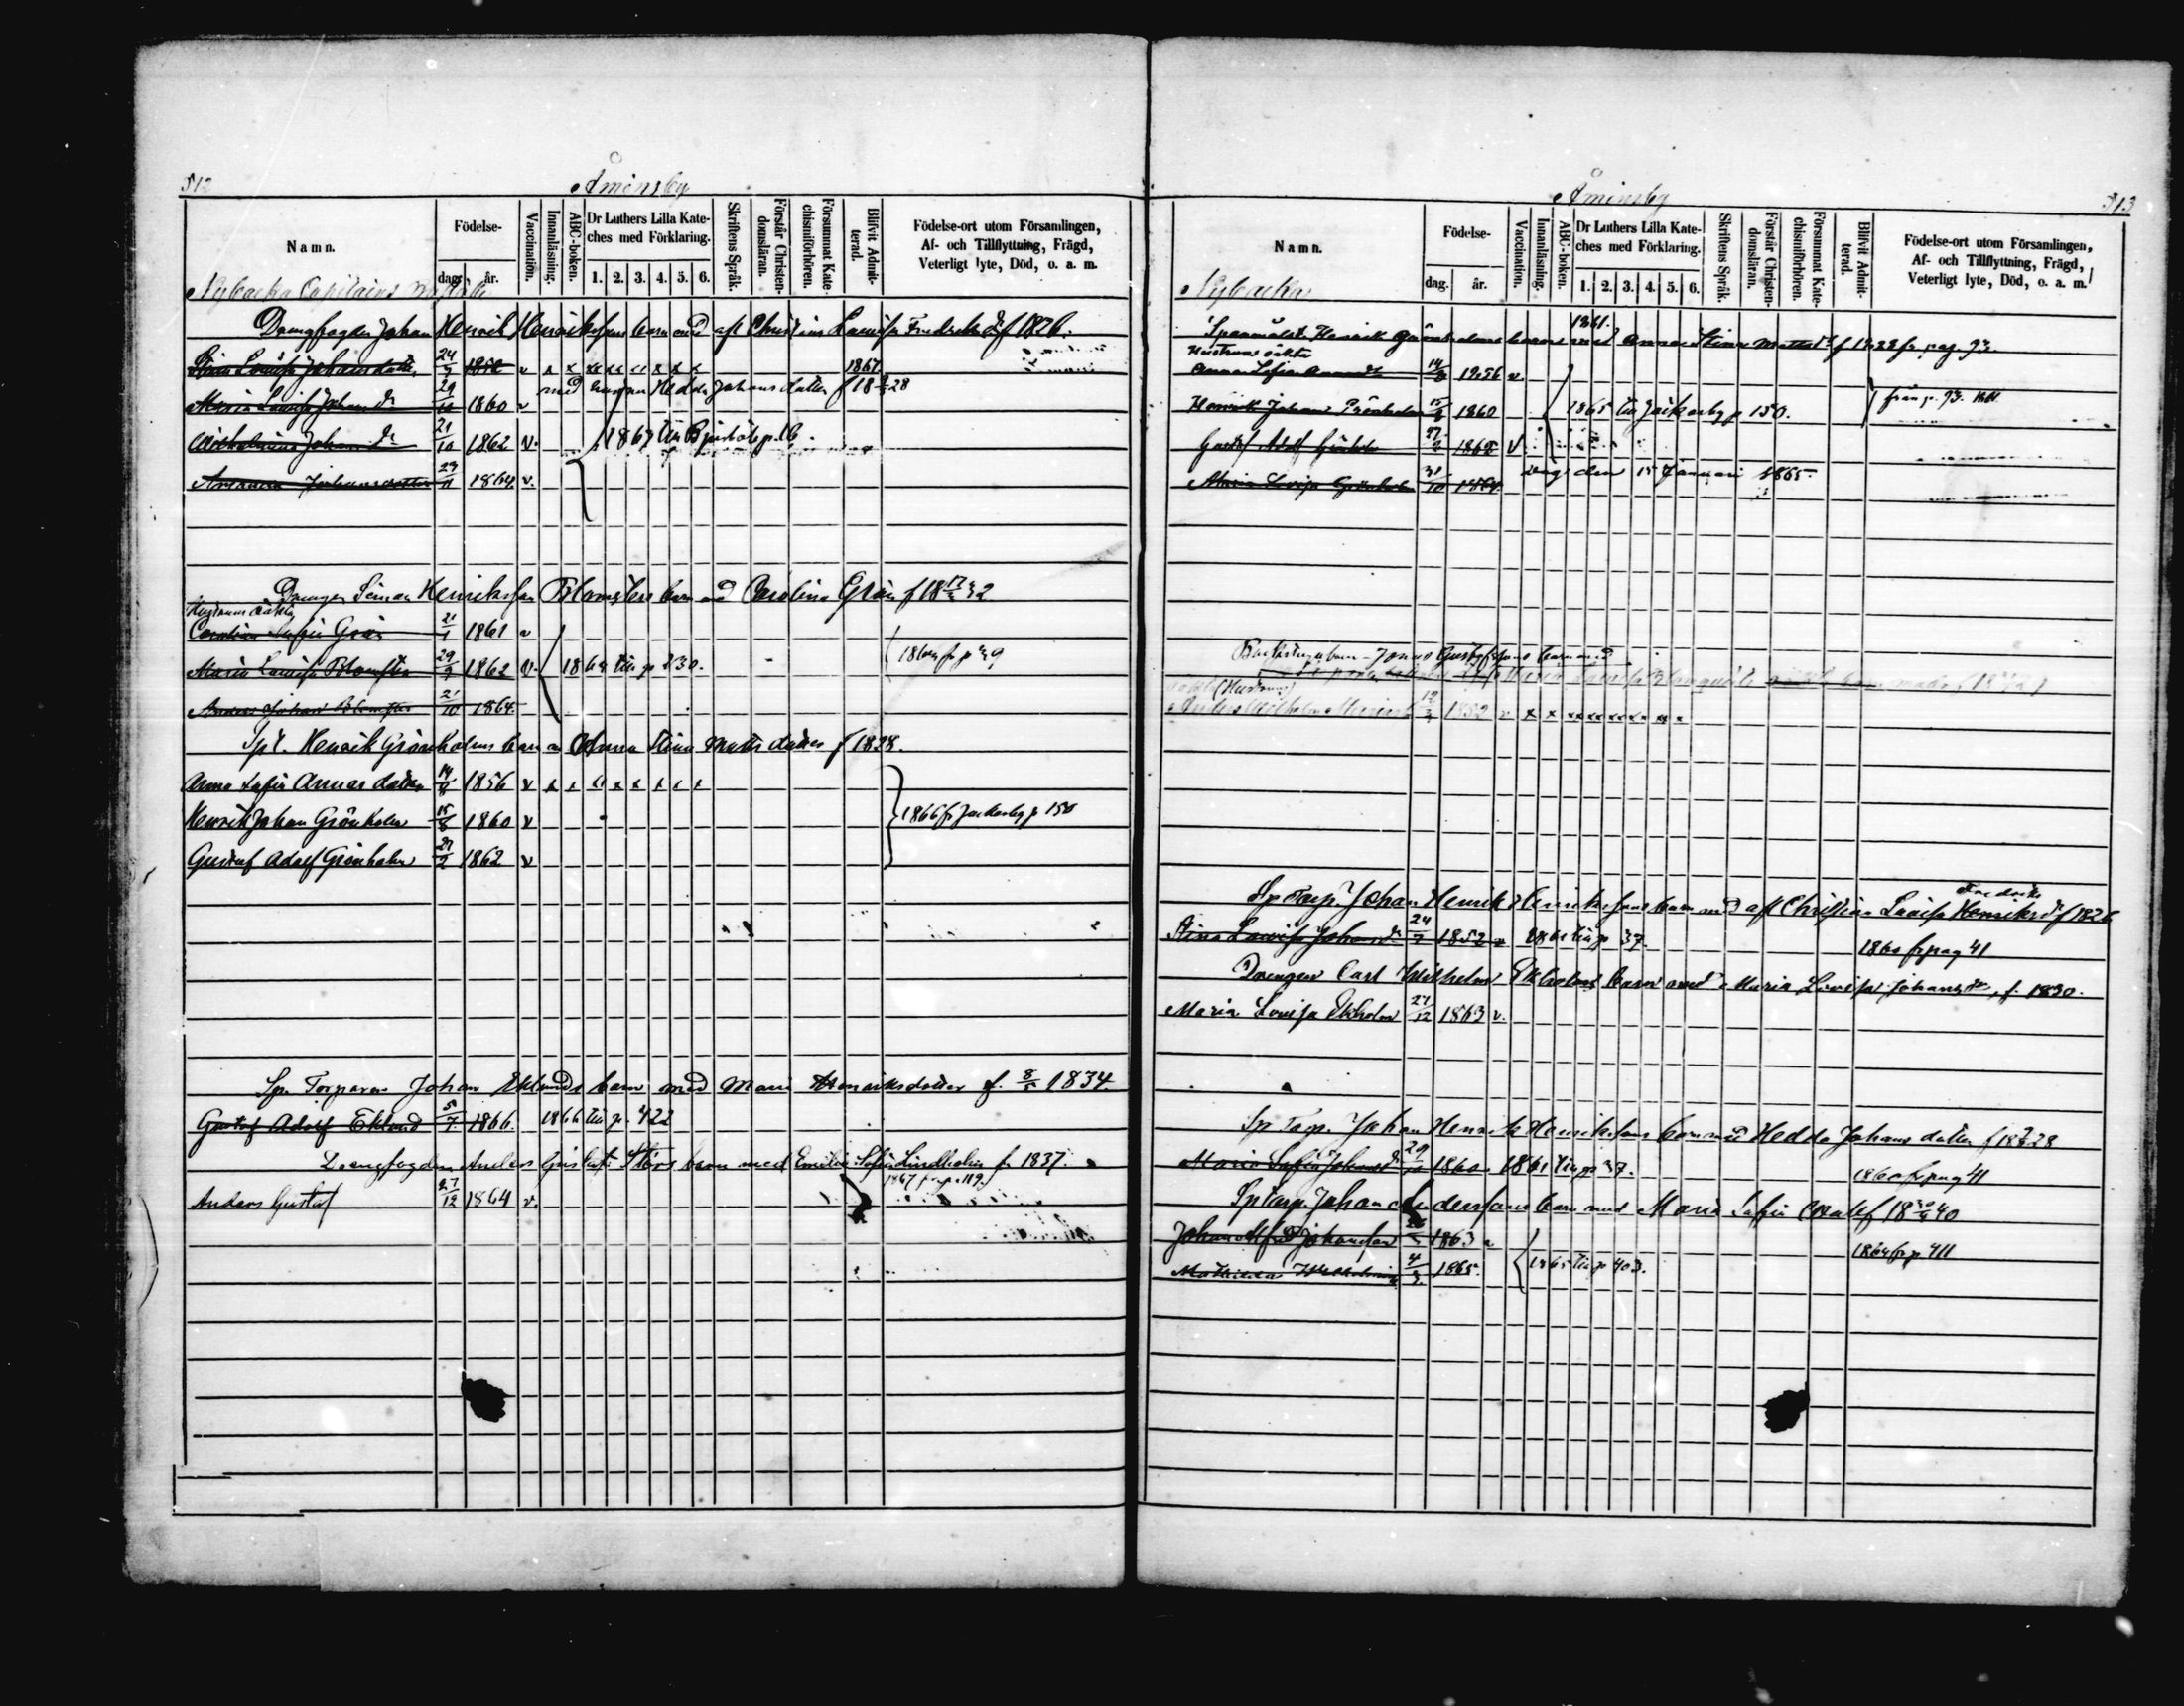 512
Åminsby
Namn.
Födelse-
dag.
år.
Vaccination.
Innanläsning.
ABC-boken.
Dr Luthers Lilla Kate-
ches med Förklaring.
1. 2. 3. 4. 5. 6.
Skriftens Språk.
Förstår Christen-
domsläran.
Försummat Kate-
chismiförhören.
Blifvit Admit-
terad.
Födelse-ort utom Församlingen,
Af- och Tillflyttning, Frägd,
Veterligt lyte, Död, o. a. m.
Nybacka Capitains
Drengfogden Johan Henrik Henrikssons barn med afl Christina Lovisa Fredriksdr f 1826.
Stina Lovisa Johansdotter 24/7 1852 v x x 1867
med hustrun Hedda Johansdotter f 18 28
Maria Lovisa Johansdr 29/10 1860 v
Wilhelmina Johansdr 21/10 1862 v. 1867 till p. 16
Amanda Johansdotter 23/11 1864 v.
Drengen Simon Henriksson Blomsters barn med Carolina Grön f 18 32
Hustruns oäkta
Carolina Sofia Grön 21/1 1861 v
Maria Lovisa Blomster 29/9 1862 v. till p 230. fr p 39
Anders Johan Blomster 21/10 1864.
Sp t. Henrik Grönholms barn m Anna Stina Mattsdotter f 1828.
Anna Sofia Annasdotter 14/8 1856 v x x x x x x x
Henrik Johan Grönholm 15/8 1860 v 1866 fr Jackarby p 150
Gustaf Adolf Grönholm 27/2 1862 v
Sp. Torparen Johan Eklunds barn med Maria Henriksdotter f. 8/5 1834.
Gustaf Adolf Eklund 5/7 1866. 1866 till p. 422
Drengfogden Anders Gustaf Störs barn med Emilia Sofia Lindholm f. 1837.
1867 fr p. 119.
Anders Gustaf 27/12 1864 v.
Åminsby
513
Namn.
Födelse-
dag.
år.
Vaccination.
Innanläsning.
ABC-boken.
Dr Luthers Lilla Kate-
ches med Förklaring.
1. 2. 3. 4. 5. 6.
Skriftens Språk.
Förstår Christen-
domsläran.
Försummat Kate-
chismiförhören.
Blifvit Admit-
terad.
Födelse-ort utom Församlingen,
Af- och Tillflyttning, Frägd,
Veterligt lyte, Död, o. a. m.
Nybacka
1861.
Spanmålst. Henrik Grönholms barn med Anna Stina Mattsdr f 1828 fr pag. 93.
Hustruns oäkta
Anna Sofia Annasdr 14/8 1856 v.
Henrik Johan Grönholm 15/8 1860 1865 till Jackarby p 150. från p. 93. 1861
Gustaf Adolf Grönholm 27/2 1862 v
Maria Lovisa Grönholm 31/10 1864. den 15 Januari 1865.
Jonas Gustafssons barn med
Maria Lovisa
(Hustruns)
Wilhelm 12/3 1852 v x x x x x x x x x
Sp Torp. Johan Henrik Henrikssons barn med afl Christina Lovisa Henriksdr f 1826
Fredriks
Stina Lovisa Johansdr 24/7 1852 v 1861 till p 37. 1860 fr pag 41
Drengen Carl Wilhelm Ekholms barn med Maria Lovisa Johansdr, f. 1830.
Maria Lovisa Ekholm 21/12 1863 v.
Sp Torp. Johan Henrik Henrikssons barn med Hedda Johansdotter f 18 28
Maria Sofia Johansdr 29/10 1860. 1861 till p 37. 1860 fr pag 41
Sp torp. Johan Anderssons barn med Maria Sofia f 18 40
Johan Alfred Johansson 1863 v 1864 fr p 411
Mathilda Wilhelmina 4/3. 1865. 1865 till p 403.